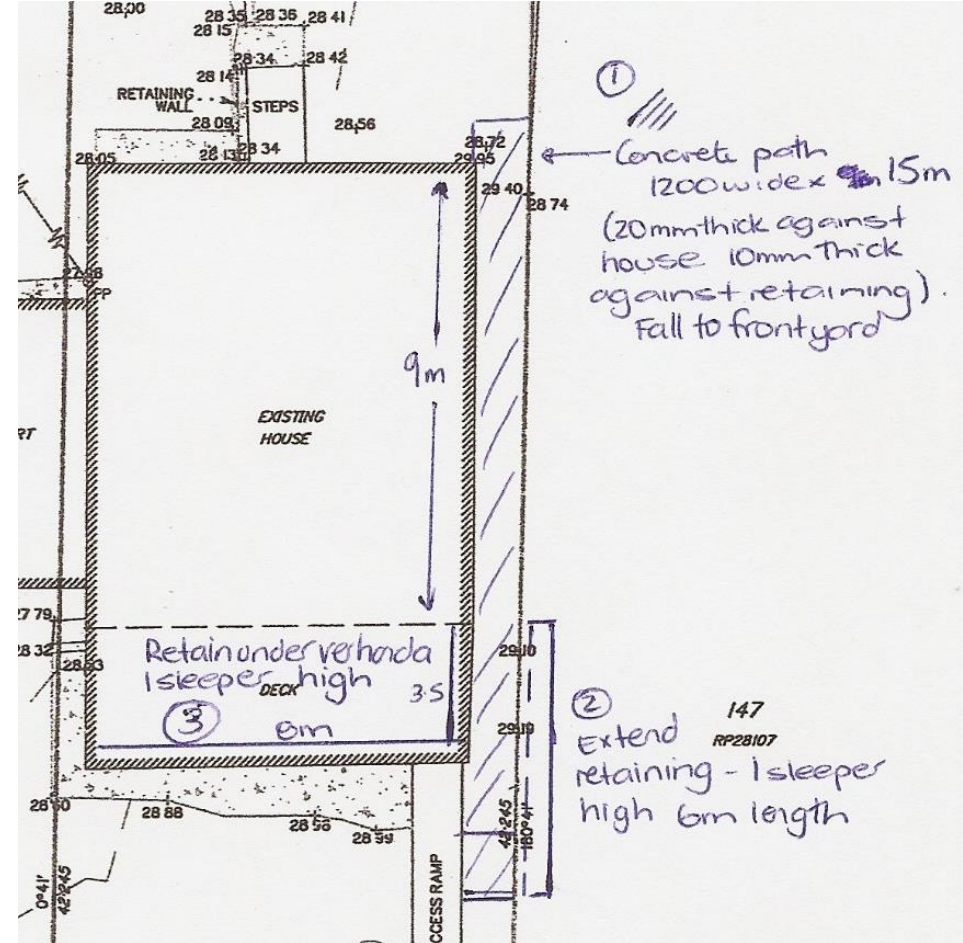 28,00
28 35
28 36
28 41
28 15
28 34
28 42
28 14
RETAINING
WALL
STEPS
28 09
28,56
28 05
28 13
28 34
28,72
29 95
29 40
28 74
①
Concrete path
1200 wide x 15m
(20mm thick against
house 10mm thick
against retaining).
Fall to frontyard
9m
EXISTING
HOUSE
RT
27 79
28 32
28,53
Retain under verhanda
1 sleeper high
DECK
3.5
③
29,10
29,19
②
Extend
retaining - 1 sleeper
high 6m length
147
RP28107
28 88
28 99
42·245
180°41'
0°41'
42·245
CCESS RAMP